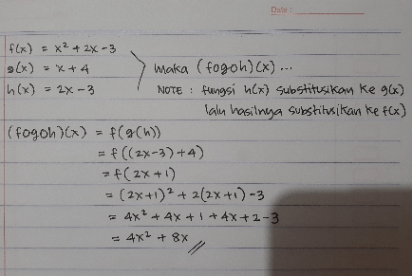 Date :
f(x) = x² + 2x - 3
g(x) = x + 4
maka (fogoh)(x) ...
h(x) = 2x - 3
NOTE : fungsi h(x) substitusikan ke g(x)
lalu hasilnya substitusikan ke f(x)
(fogoh)(x) = f(g(h))
= f((2x-3) + 4)
= f(2x + 1)
= (2x+1)² + 2(2x+1) - 3
= 4x² + 4x + 1 + 4x + 2 - 3
= 4x² + 8x